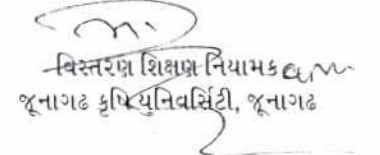 વિસ્તરણ શિક્ષણ નિયામક
જૂનાગઢ કૃષિ યુનિવર્સિટી, જૂનાગઢ